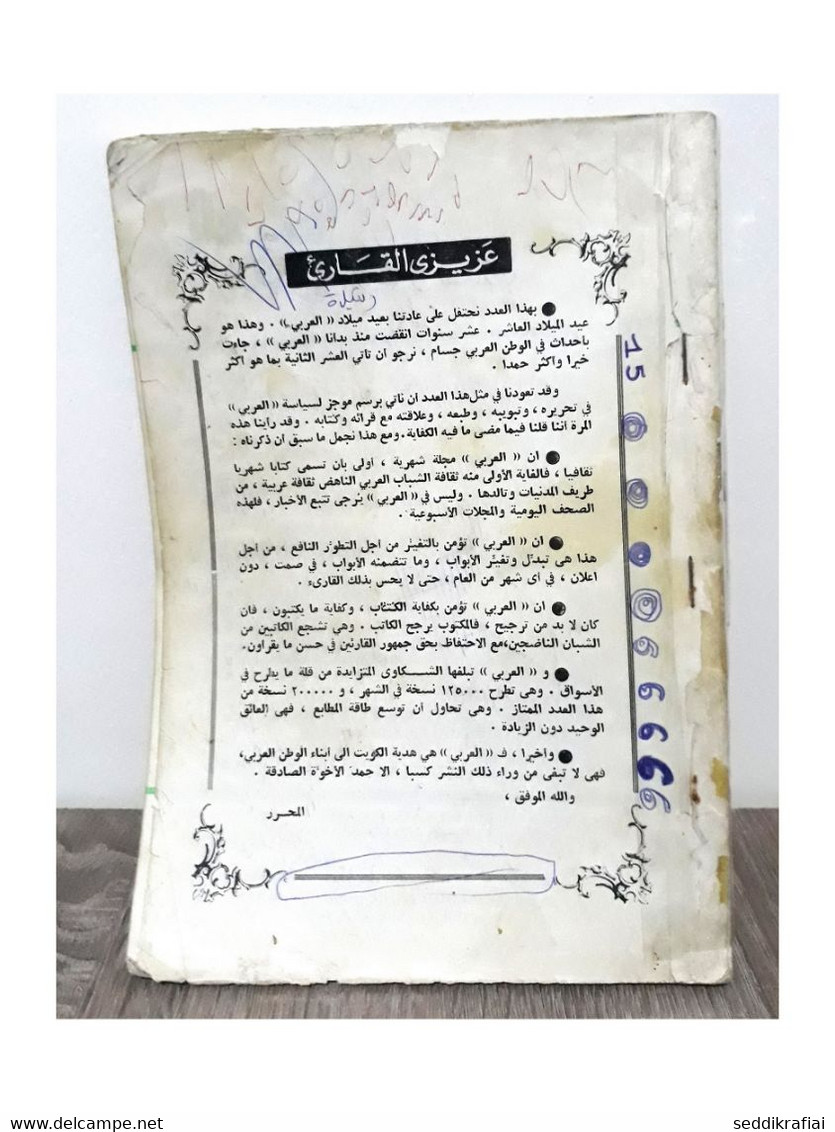 عَزيزى القَارئ
رشيدة
● بهذا العدد نحتفل على عادتنا بعيد ميلاد «العربي» . وهذا هو
عيد الميلاد العاشر . عشر سنوات انقضت منذ بدانا «العربي» ، جاءت
باحداث في الوطن العربي جسام ، نرجو ان تاتي العشر الثانية بما هو اكثر
خيرا واكثر حمدا .
وقد تعودنا في مثل هذا العدد ان ناتي برسم موجز لسياسة «العربي»
في تحريره ، وتبويبه ، وطبعه ، وعلاقته مع قرائه وكتابه . وقد راينا هذه
المرة اننا قلنا فيما مضى ما فيه الكفاية. ومع هذا نجمل ما سبق ان ذكرناه :
● ان «العربي» مجلة شهرية ، أولى بان تسمى كتابا شهريا
ثقافيا ، فالغاية الأولى منه ثقافة الشباب العربي الناهض ثقافة عربية ، من
طريف المدنيات وتالدها . وليس في «العربي» يُرجى تتبع الأخبار ، فلهذه
الصحف اليومية والمجلات الأسبوعية .
● ان «العربي» تؤمن بالتغيّر من أجل التطور النافع ، من أجل
هذا هى تبدّل وتغيّر الأبواب ، وما تتضمنه الأبواب ، في صمت ، دون
اعلان ، في اى شهر من العام ، حتى لا يحس بذلك القارىء .
● ان «العربي» تؤمن بكفاية الكتاب ، وكفاية ما يكتبون ، فان
كان لا بد من ترجيح ، فالمكتوب يرجح الكاتب . وهي تشجع الكاتبين من
الشبان الناضجين، مع الاحتفاظ بحق جمهور القارئين في حسن ما يقراون.
● و «العربي» تبلغها الشكاوى المتزايدة من قلة ما يطرح في
الأسواق . وهى تطرح ١٢٥٠٠٠ نسخة في الشهر ، و ٢٠٠٠٠٠ نسخة من
هذا العدد الممتاز . وهى تحاول أن توسع طاقة المطابع ، فهى العائق
الوحيد دون الزيادة .
● وأخيرا ، ف «العربي» هي هدية الكويت الى أبناء الوطن العربي،
فهى لا تبغى من وراء ذلك النشر كسبا ، الا حمدَ الأخوة الصادقة .
والله الموفق ،
المحرر
15
6
6
6
6
6
6
seddikrafiai